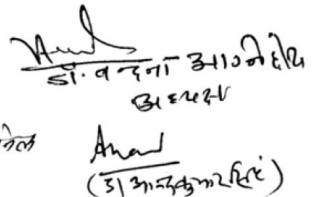 डॉ. वन्दना अग्निहोत्री
अध्यक्ष
Anand
(डॉ आनन्द कुमार सिंह)